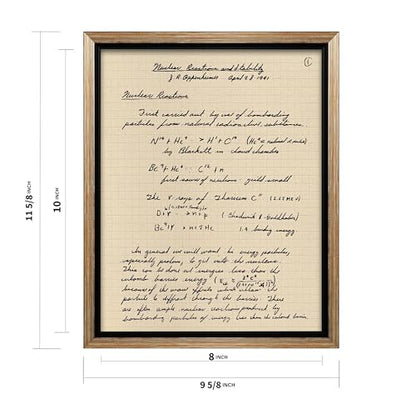 ①
Nuclear Reactions and Stability
J. R. Oppenheimer April 28 1941
Nuclear Reactions
First carried out by use of bombarding
particles from natural radioactive substances.
N¹⁴ + He⁴ → H¹ + (He⁴ = natural α rays)
by Blackett in cloud chambers
Be⁹ + He⁴ C¹² + n
first source of neutrons yield small
The γ rays of Thorium C" (2.62 MeV)
D + γ → n + p (Chadwick & Goldhaber)
Be⁹ γ → n + 2He binding energy
In general we will want to energy particles,
especially protons, to get into the
This can be done at energies less than the
coulomb barrier energy
because of the wave effects which allow the
particle to diffract through the barrier. There
are often ample nuclear reactions produced by
bombarding particles of energy less than the coulomb barrier.
11 5/8 INCH
10 INCH
8 INCH
9 5/8 INCH